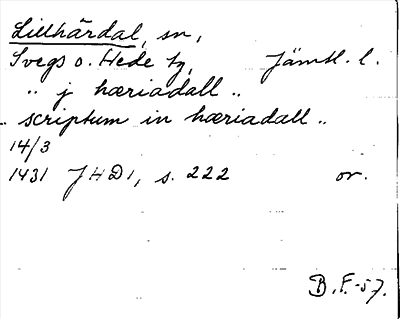 Lillhärdal, sn,
Svegs o. Hede tg, Jämtl. l.
.. j hæriadall ..
scriptum in hæriadall ..
14/3
1431 JHD1, s. 222 or.
B. F.-57.